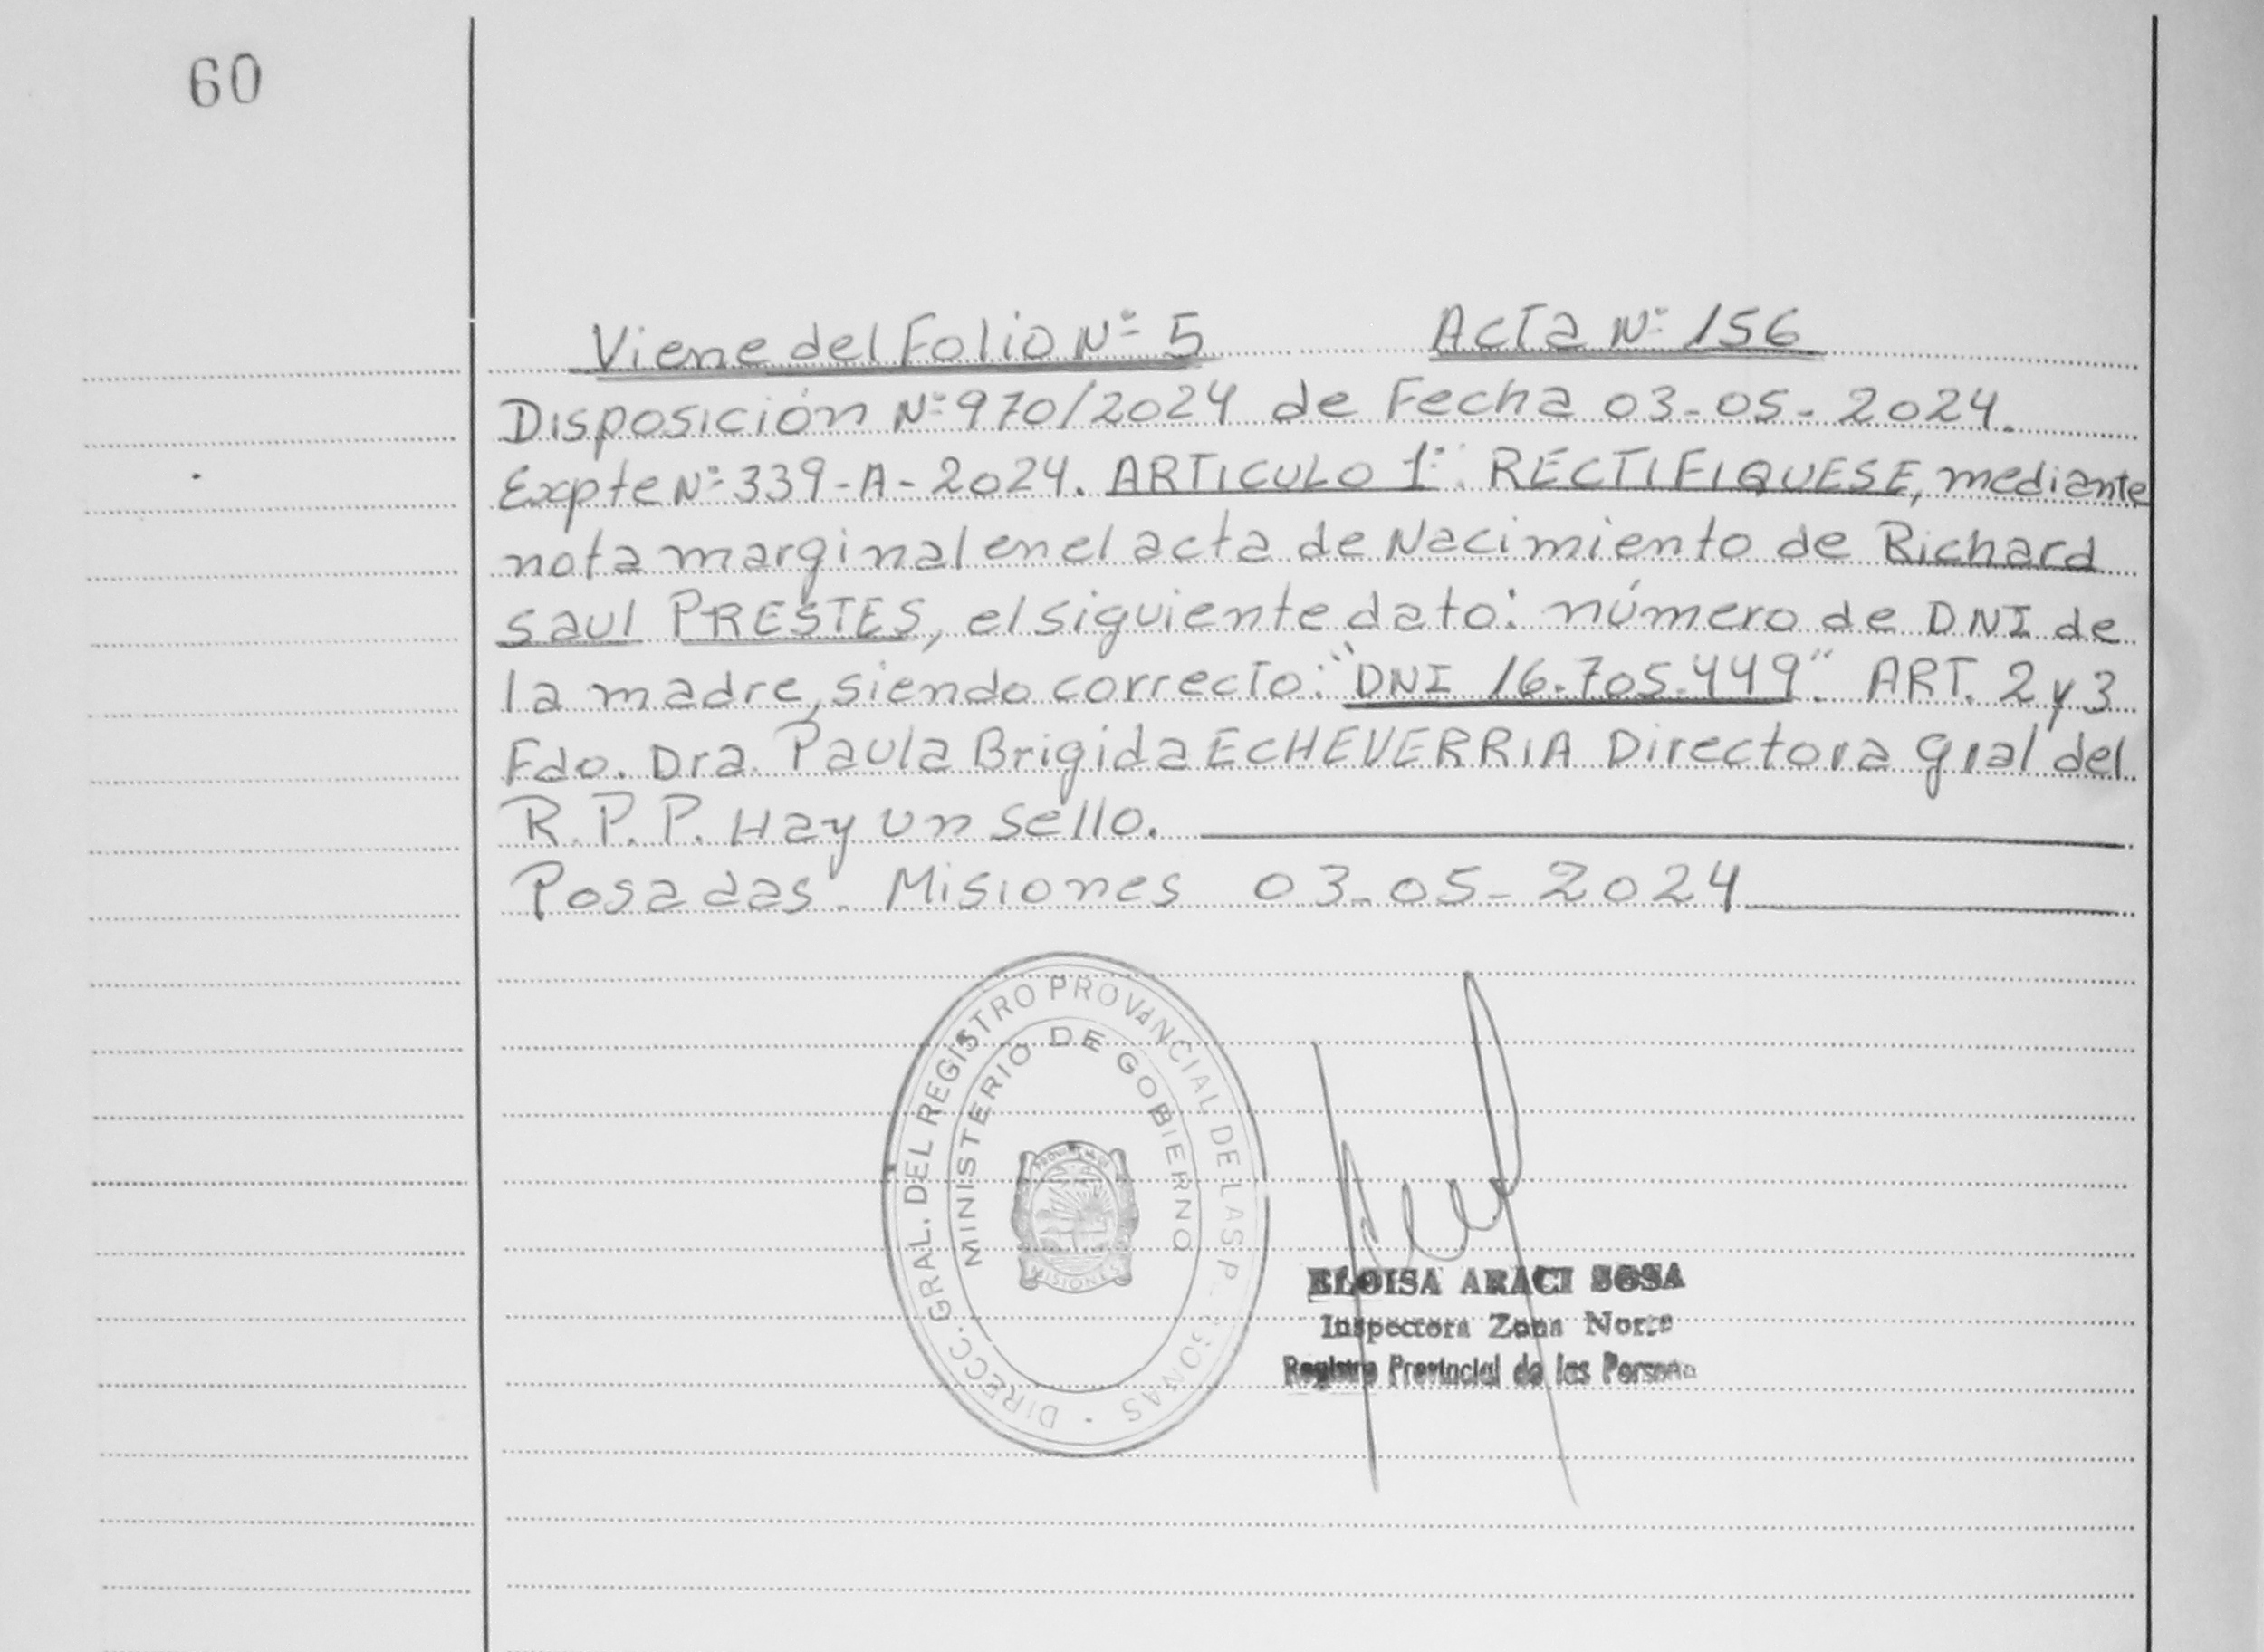 60
Viene del Folio Nº 5 Acta Nº 156
Disposición Nº 970/2024 de Fecha 03-05-2024.
Expte Nº 339-A-2024. ARTICULO 1º: RECTIFIQUESE, mediante
nota marginal en el acta de Nacimiento de Richard
saul PRESTES, el siguiente dato: número de DNI de
la madre, siendo correcto: "DNI 16.705.449". ART. 2 y 3
Fdo. Dra. Paula Brigida ECHEVERRIA Directora Gral del
R.P.P. Hay un sello.
Posadas - Misiones 03-05-2024
DIRECC. GRAL. DEL REGISTRO PROVINCIAL DE LAS PERSONAS
MINISTERIO DE GOBIERNO
MISIONES
ELOISA ARACI SOSA
Inspectora Zona Norte
Registro Provincial de las Persona